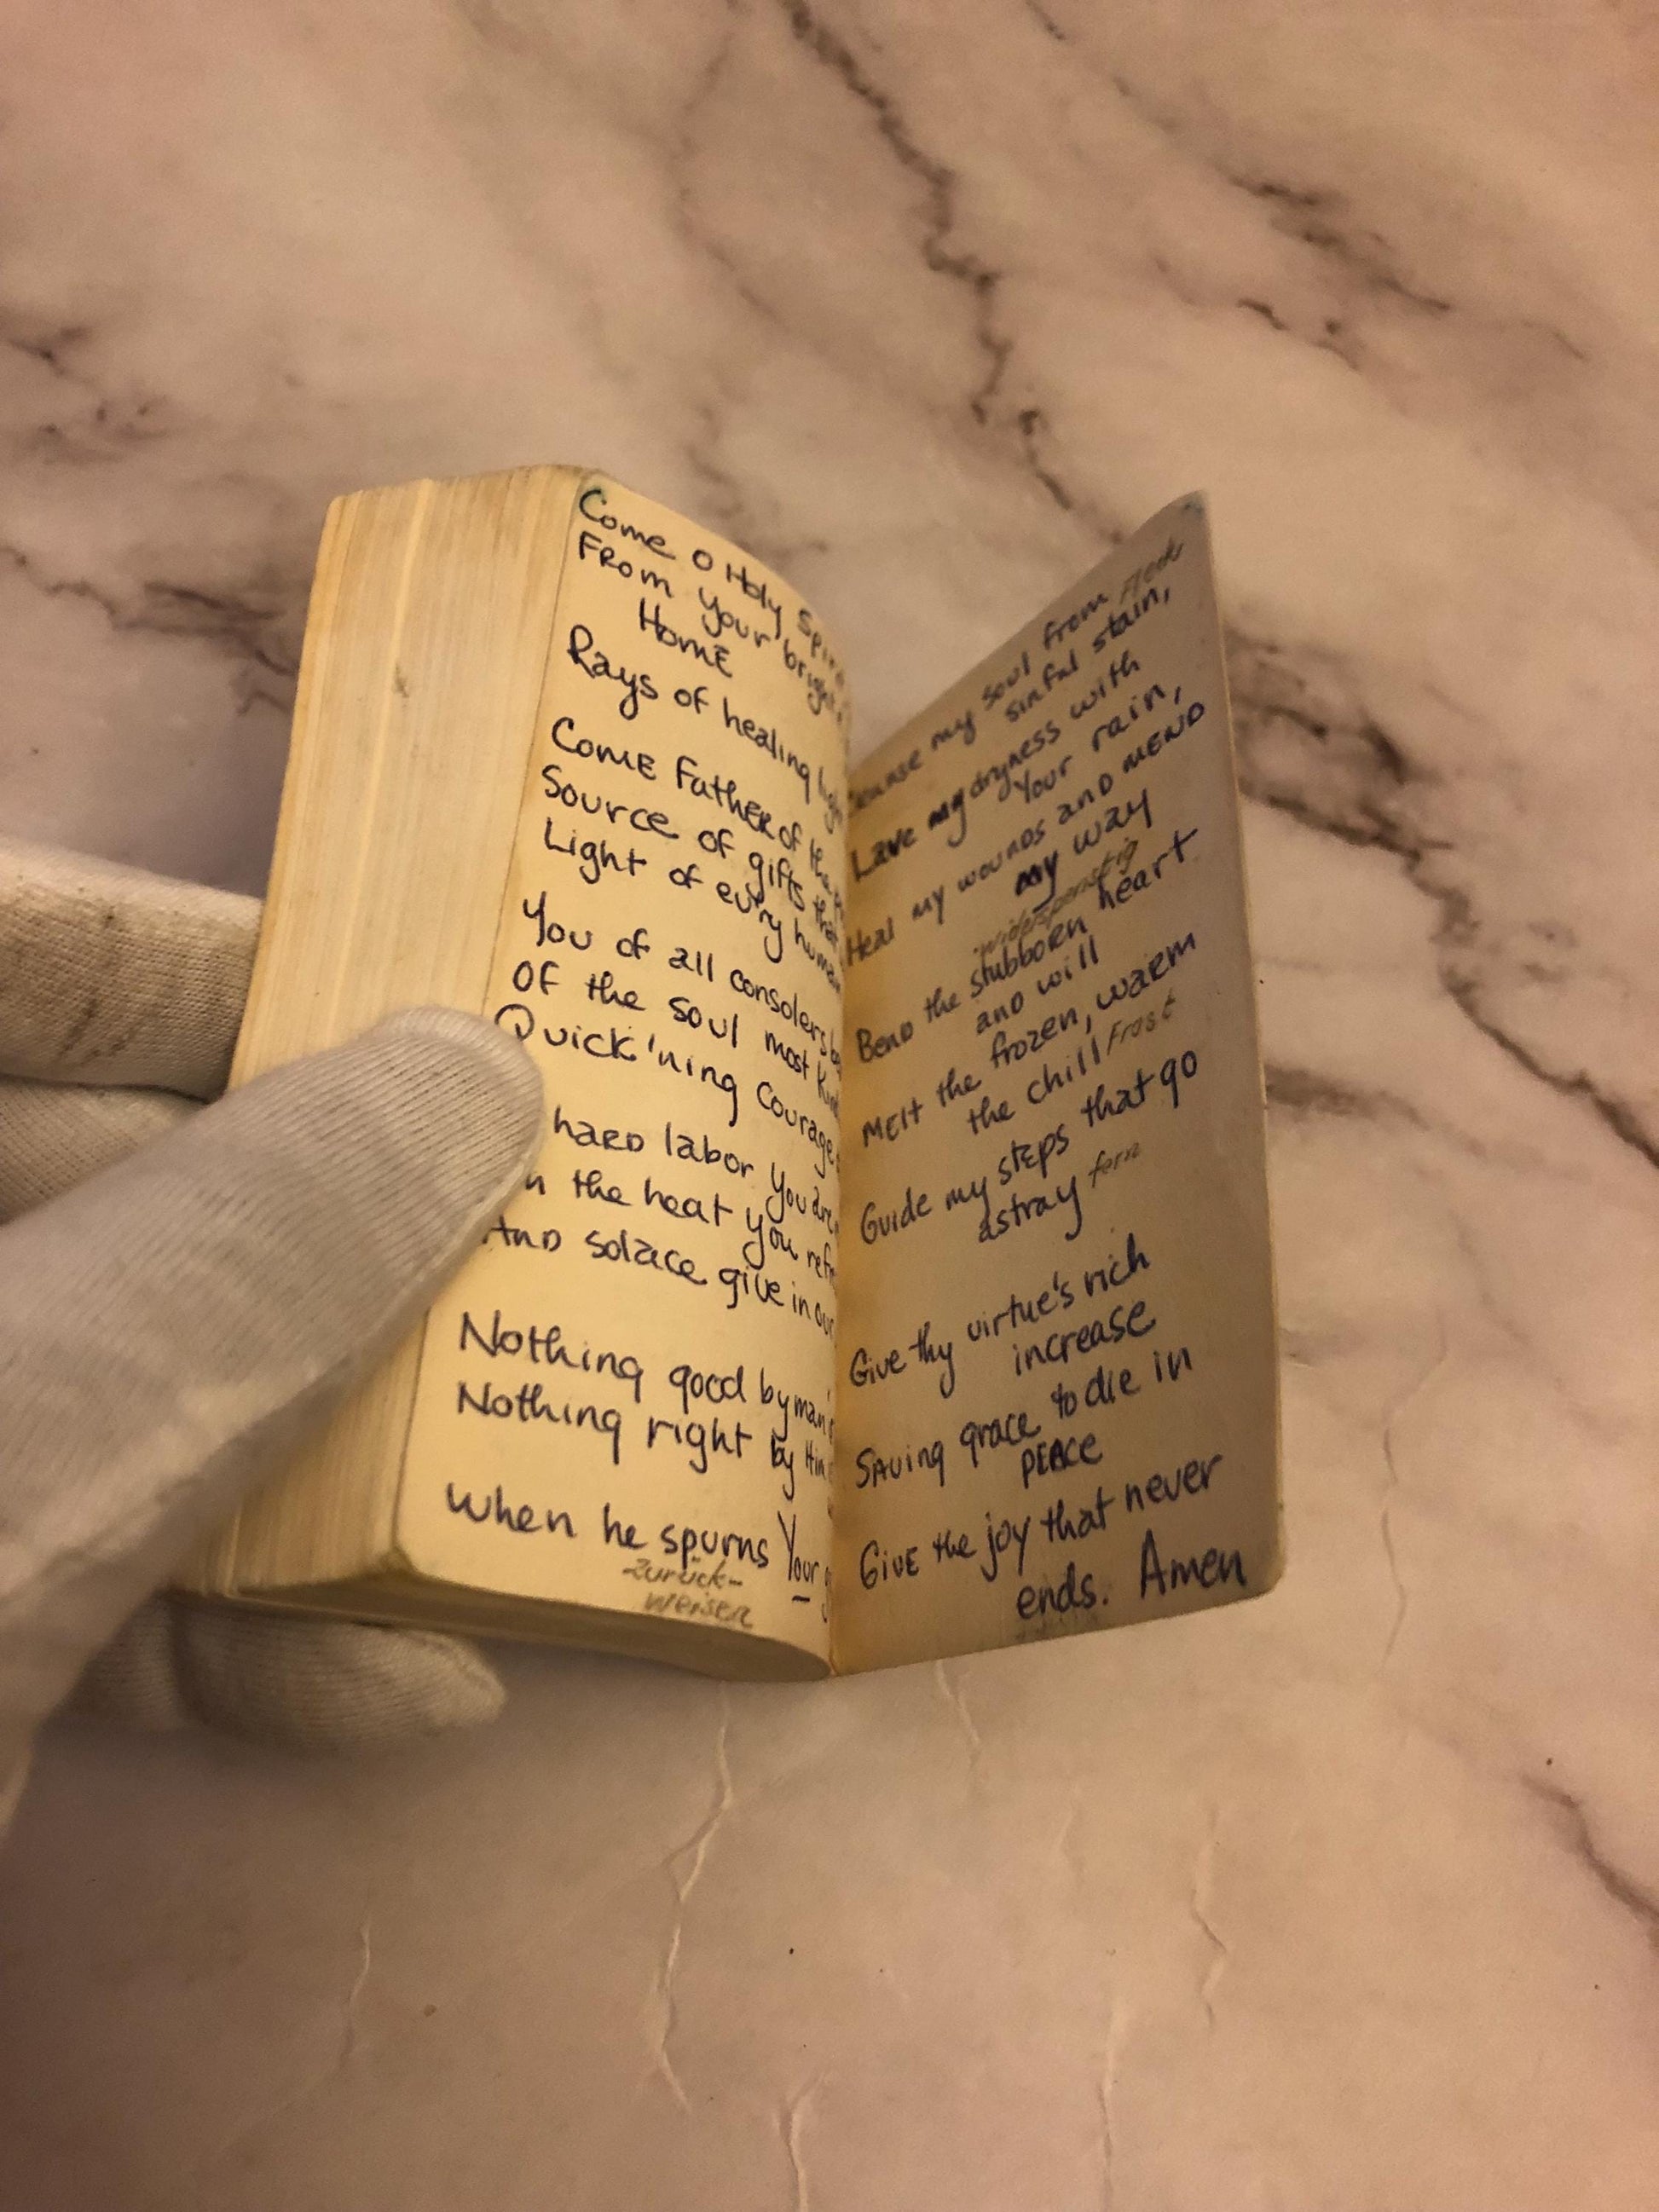 Come O Holy
From your
Home
Rays of healing
Come Father of
Source of gifts
Light of every
You of all consolers
Of the soul most
Quick'ning Courage
hard labor you
the heat you
And solace give in
Nothing good by
Nothing right by
when he spurns Your
zurück-
weisen
my soul from Fleck
sinful stain,
Lave my dryness with
Your rain,
Heal my wounds and mend
my way
widerspenstig
Bend the stubborn heart
and will
Melt the frozen, warm
the chill Frost
Guide my steps that go
astray fern
Give thy virtue's rich
increase
Saving grace to die in
peace
Give the joy that never
ends. Amen